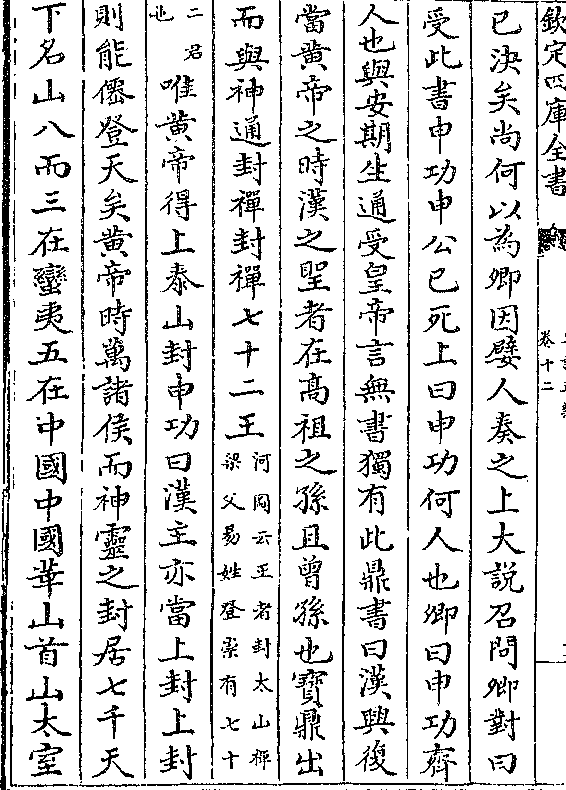 欽定四庫全書
卷十二
已決矣尚何以為卿因嬖人奏之上大說召問卿對曰
受此書申功申公已死上曰申功何人也卿曰申功齊
人也與安期生通受皇帝言無書獨有此鼎書曰漢興復
當黄帝之時漢之聖者在髙祖之孫且曾孫也寶鼎出
而與神通封禪封禪七十二王
河圖云王者封太山禪
梁父易姓登崇有七十
二君
也
唯黄帝得上泰山封申功曰漢主亦當上封上封
則能僊登天矣黄帝時萬諸侯而神靈之封居七千天
下名山八而三在蠻夷五在中國中國華山首山太室